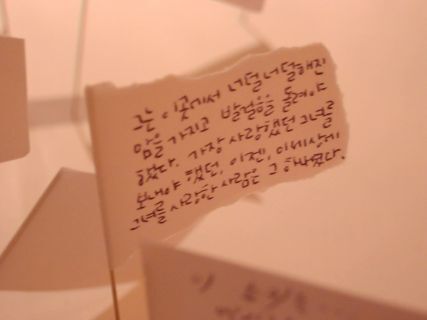 그는 이곳에서 너덜너덜해진
맘을 가지고 발걸음을 돌려야
했다. 가장 사랑했던 그녀를
보내야 했던, 이젠, 이세상에
그녀를 사랑한 사람은 그 하나였다.
이